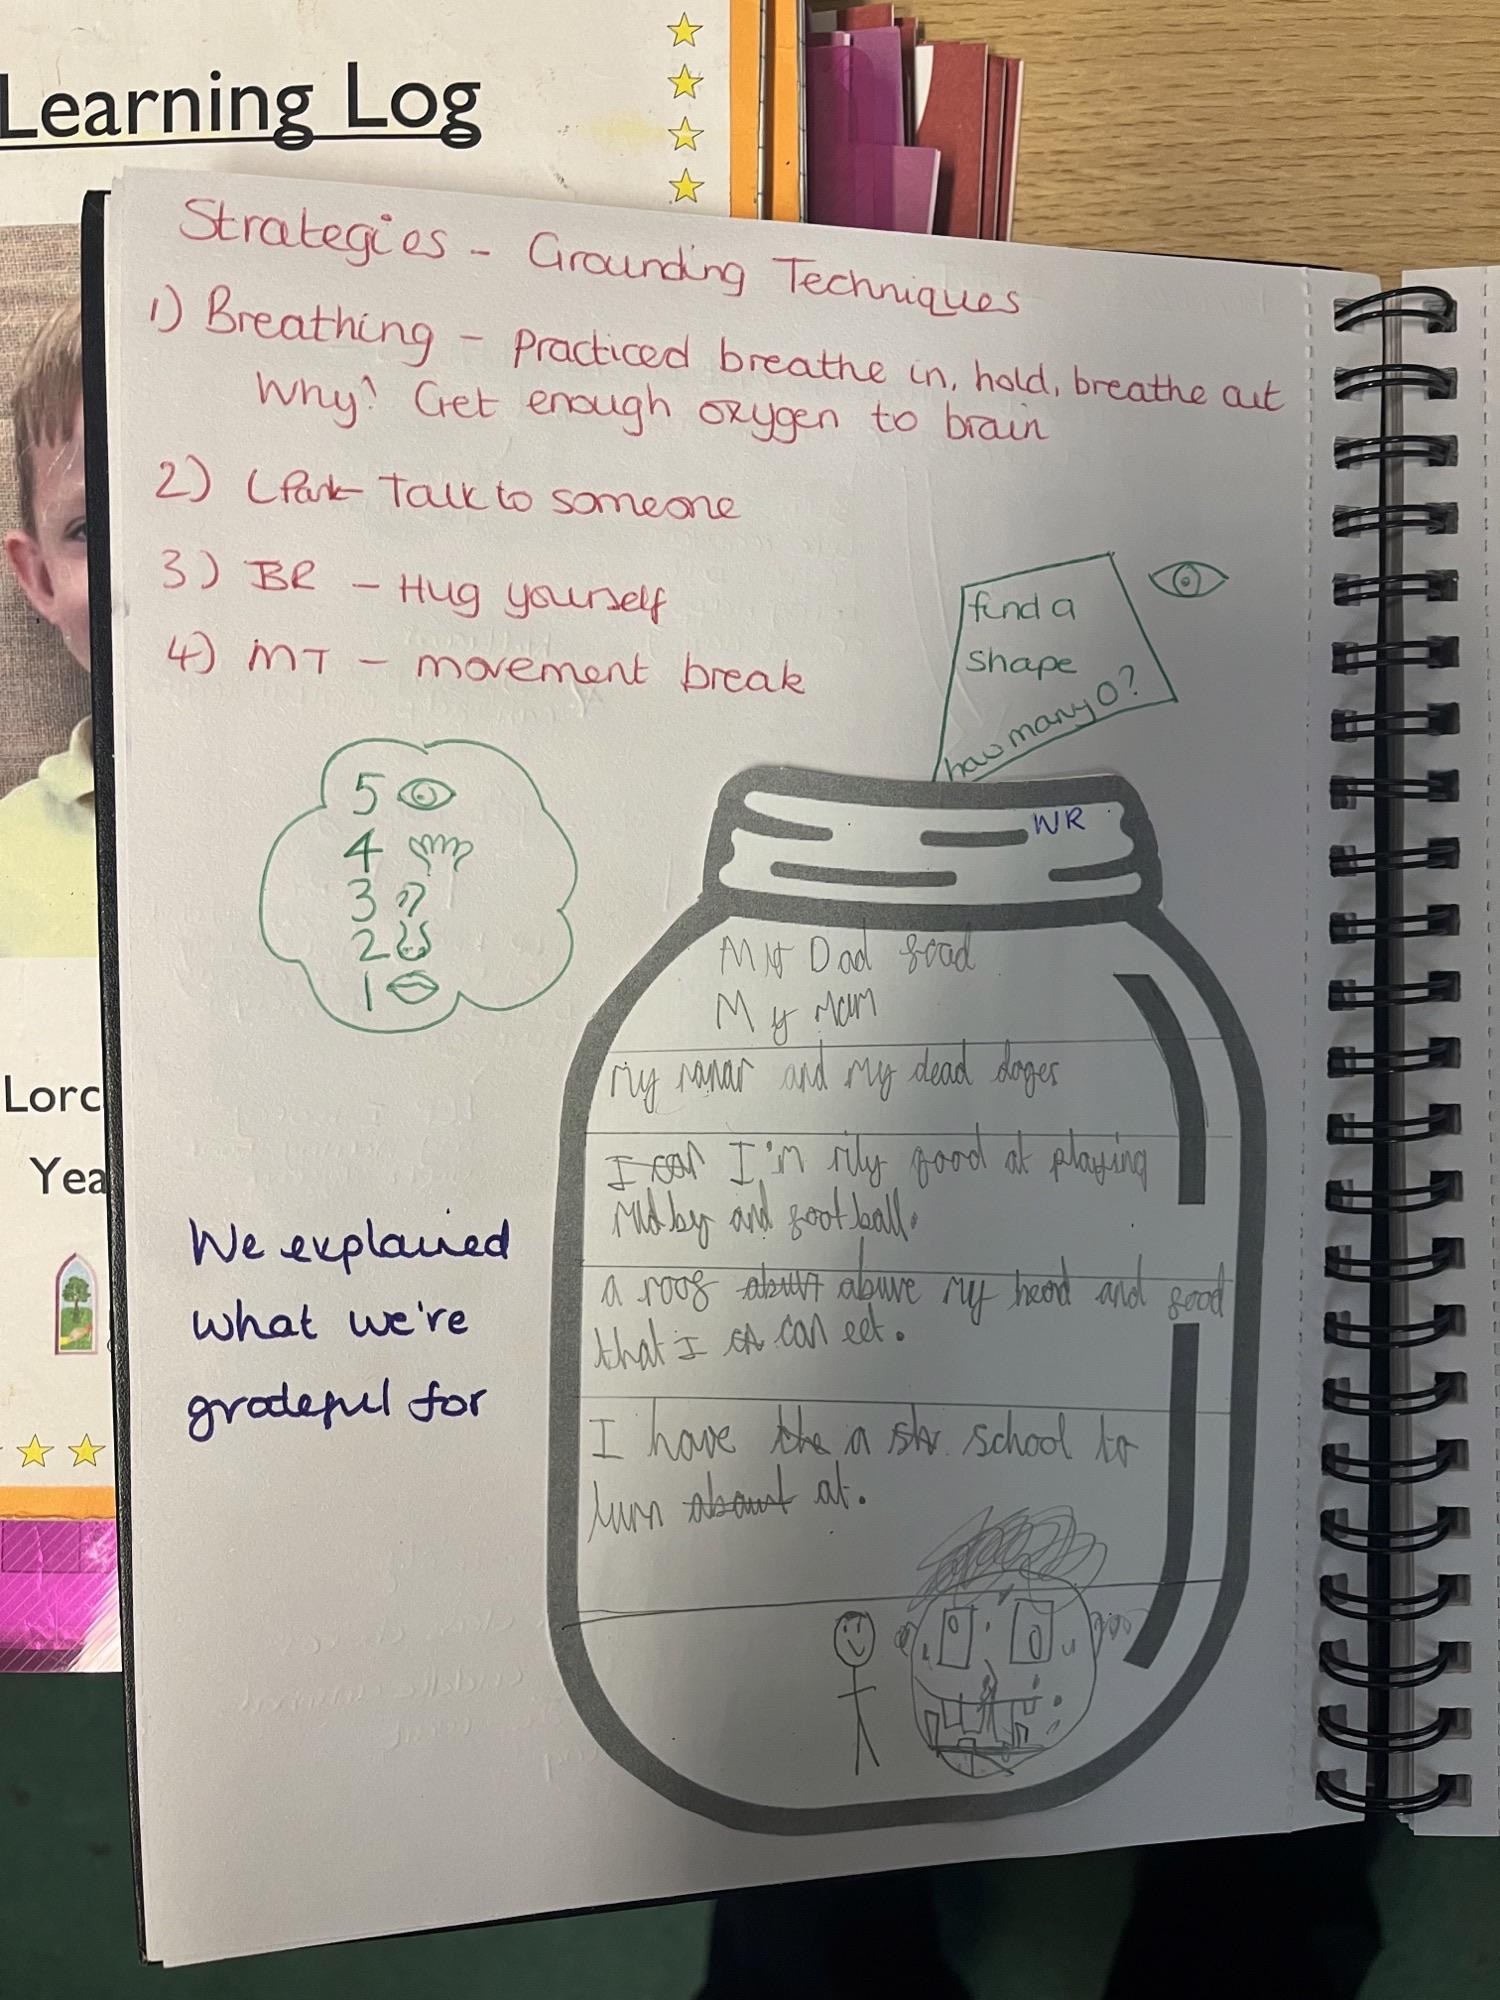 Learning Log
Strategies - Grounding Techniques
1) Breathing - Practiced breathe in, hold, breathe out
Why? Get enough oxygen to brain
2) Talk to someone
3) BR - Hug yourself
4) MT - movement break
find a
shape
how many O?
5
4
3
2
1
WR
Dad
My Mum
My nanar and my dead doges
I can I'm rily good at playing
and football.
a roof abuve my head and food
that I can eet.
I have the a school to
lurn about at.
We explained
what we're
grateful for
Lorc
Yea